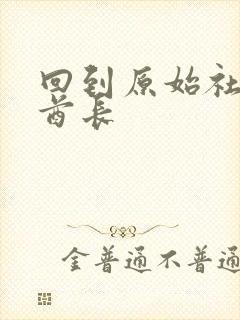 回到原始社
酋长
金普通不普通